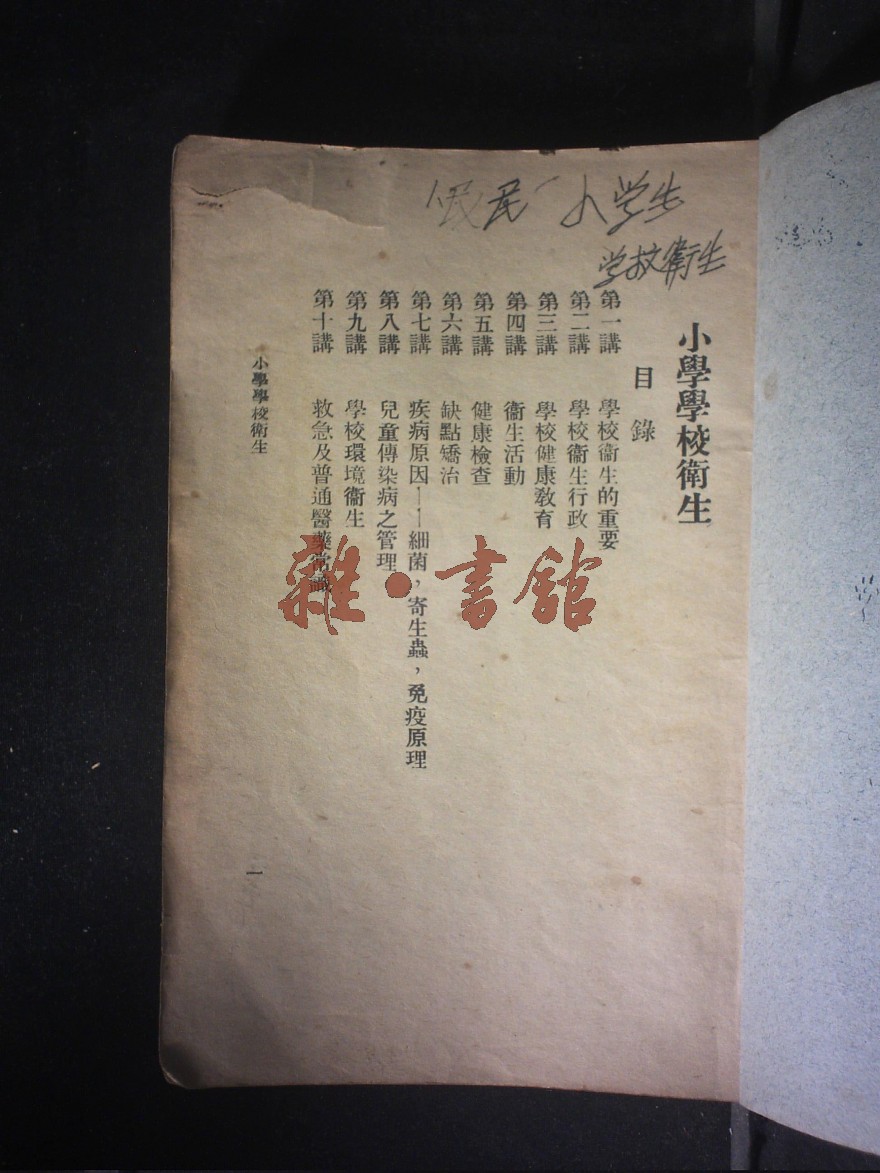 民 小学生
学校衛生
小學學校衛生
目錄
第一講 學校衞生的重要
第二講 學校衞生行政
第三講 學校健康教育
第四講 衞生活動
第五講 健康檢查
第六講 缺點矯治
第七講 疾病原因——細菌，寄生蟲，免疫原理
第八講 兒童傳染病之管理
第九講 學校環境衞生
第十講 救急及普通醫藥常識
小學學校衛生
一
雜·書館